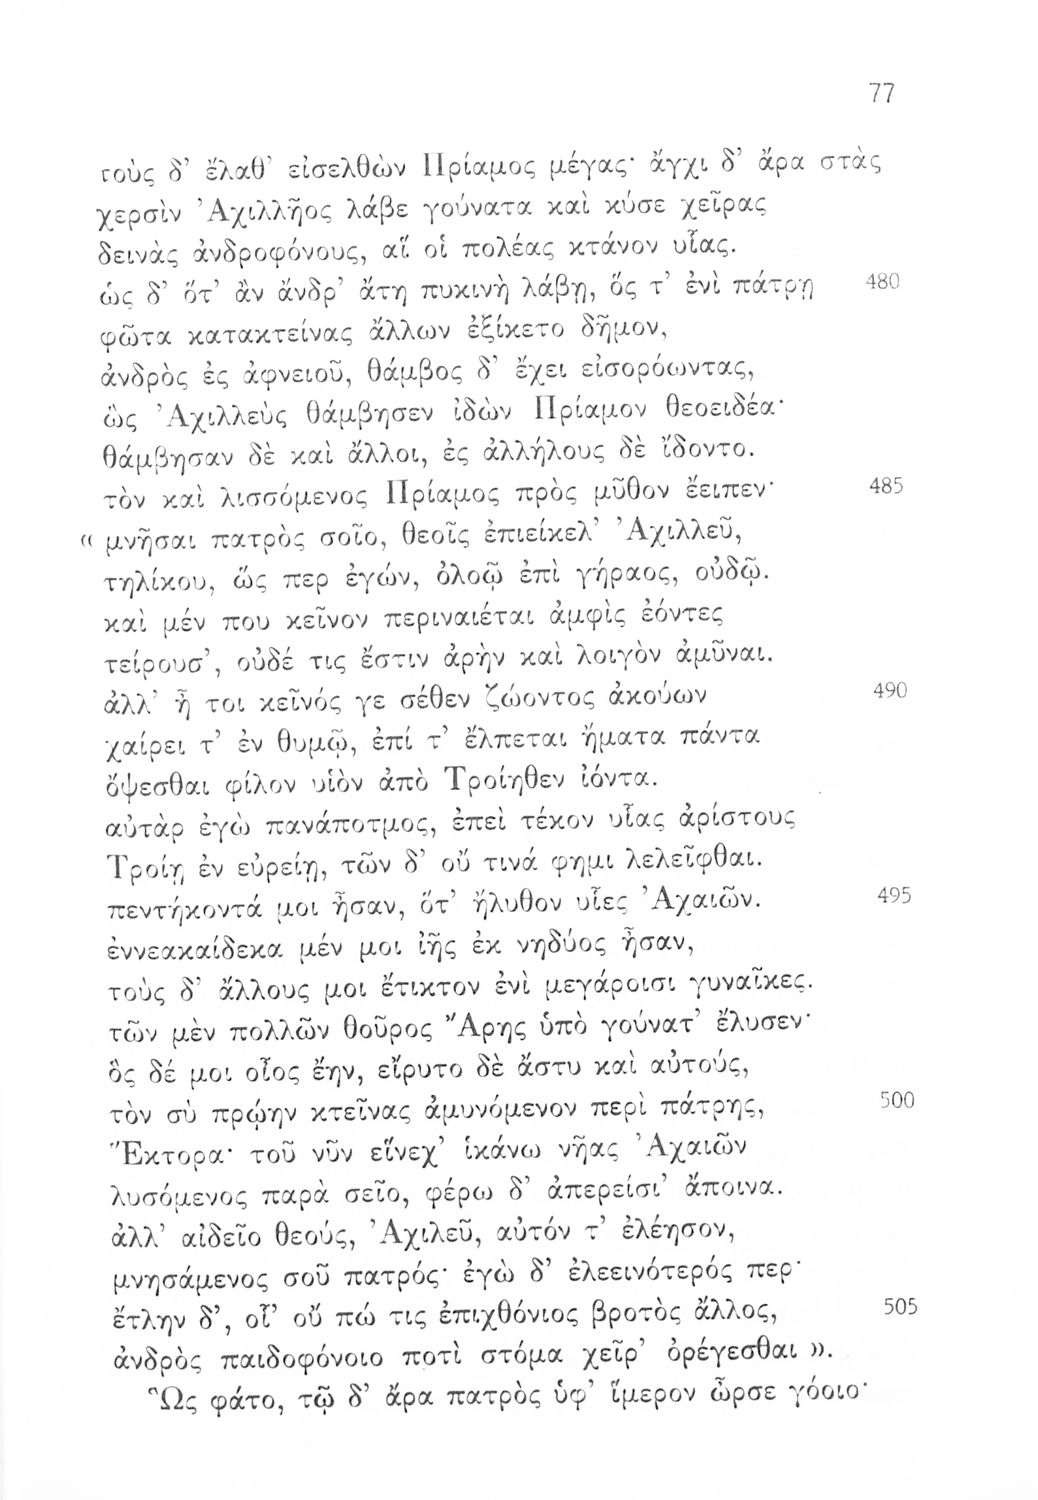 77
τοὺς δ’ ἔλαθ’ εἰσελθὼν Πρίαμος μέγας· ἄγχι δ’ ἄρα στὰς
χερσὶν Ἀχιλλῆος λάβε γούνατα καὶ κύσε χεῖρας
δεινὰς ἀνδροφόνους, αἵ οἱ πολέας κτάνον υἷας.
ὡς δ’ ὅτ’ ἂν ἄνδρ’ ἄτη πυκινὴ λάβῃ, ὅς τ’ ἐνὶ πάτρῃ 480
φῶτα κατακτείνας ἄλλων ἐξίκετο δῆμον,
ἀνδρὸς ἐς ἀφνειοῦ, θάμβος δ’ ἔχει εἰσορόωντας,
ὣς Ἀχιλλεὺς θάμβησεν ἰδὼν Πρίαμον θεοειδέα·
θάμβησαν δὲ καὶ ἄλλοι, ἐς ἀλλήλους δὲ ἴδοντο.
τὸν καὶ λισσόμενος Πρίαμος πρὸς μῦθον ἔειπεν· 485
« μνῆσαι πατρὸς σοῖο, θεοῖς ἐπιείκελ’ Ἀχιλλεῦ,
τηλίκου, ὥς περ ἐγών, ὀλοῷ ἐπὶ γήραος, οὐδῷ.
καὶ μέν που κεῖνον περιναιέται ἀμφὶς ἐόντες
τείρουσ’, οὐδέ τις ἔστιν ἀρὴν καὶ λοιγὸν ἀμῦναι.
ἀλλ’ ἦ τοι κεῖνός γε σέθεν ζώοντος ἀκούων 490
χαίρει τ’ ἐν θυμῷ, ἐπί τ’ ἔλπεται ἤματα πάντα
ὄψεσθαι φίλον υἱὸν ἀπὸ Τροίηθεν ἰόντα.
αὐτὰρ ἐγὼ πανάποτμος, ἐπεὶ τέκον υἷας ἀρίστους
Τροίῃ ἐν εὐρείῃ, τῶν δ’ οὔ τινά φημι λελεῖφθαι.
πεντήκοντά μοι ἦσαν, ὅτ’ ἤλυθον υἷες Ἀχαιῶν. 495
ἐννεακαίδεκα μέν μοι ἰῆς ἐκ νηδύος ἦσαν,
τοὺς δ’ ἄλλους μοι ἔτικτον ἐνὶ μεγάροισι γυναῖκες.
τῶν μὲν πολλῶν θοῦρος Ἄρης ὑπὸ γούνατ’ ἔλυσεν·
ὃς δέ μοι οἶος ἔην, εἴρυτο δὲ ἄστυ καὶ αὐτούς,
τὸν σὺ πρῴην κτεῖνας ἀμυνόμενον περὶ πάτρης, 500
Ἕκτορα· τοῦ νῦν εἵνεχ’ ἱκάνω νῆας Ἀχαιῶν
λυσόμενος παρὰ σεῖο, φέρω δ’ ἀπερείσι’ ἄποινα.
ἀλλ’ αἰδεῖο θεούς, Ἀχιλεῦ, αὐτόν τ’ ἐλέησον,
μνησάμενος σοῦ πατρός· ἐγὼ δ’ ἐλεεινότερός περ·
ἔτλην δ’, οἷ’ οὔ πώ τις ἐπιχθόνιος βροτὸς ἄλλος, 505
ἀνδρὸς παιδοφόνοιο ποτὶ στόμα χεῖρ’ ὀρέγεσθαι ».
Ὣς φάτο, τῷ δ’ ἄρα πατρὸς ὑφ’ ἵμερον ὦρσε γόοιο·